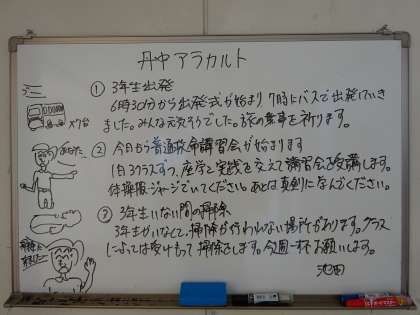 丹中アラカルト
① 3年生出発
6時30分から出発式が始まり7時にバスで出発していき
ました。みんな元気そうでした。旅の無事を祈ります。
×7台
② 今日から普通救命講習会が始まります
1日3クラスずつ、座学と実践を交えて講習会を受講します。
体操服・ジャージでいてください。あとは真剣にのぞんでください。
③ 3年生いない間の掃除
3年生がいなくて、掃除が行われない場所があります。クラス
によっては受けもって掃除をします。今週一杯お願いします。
池田